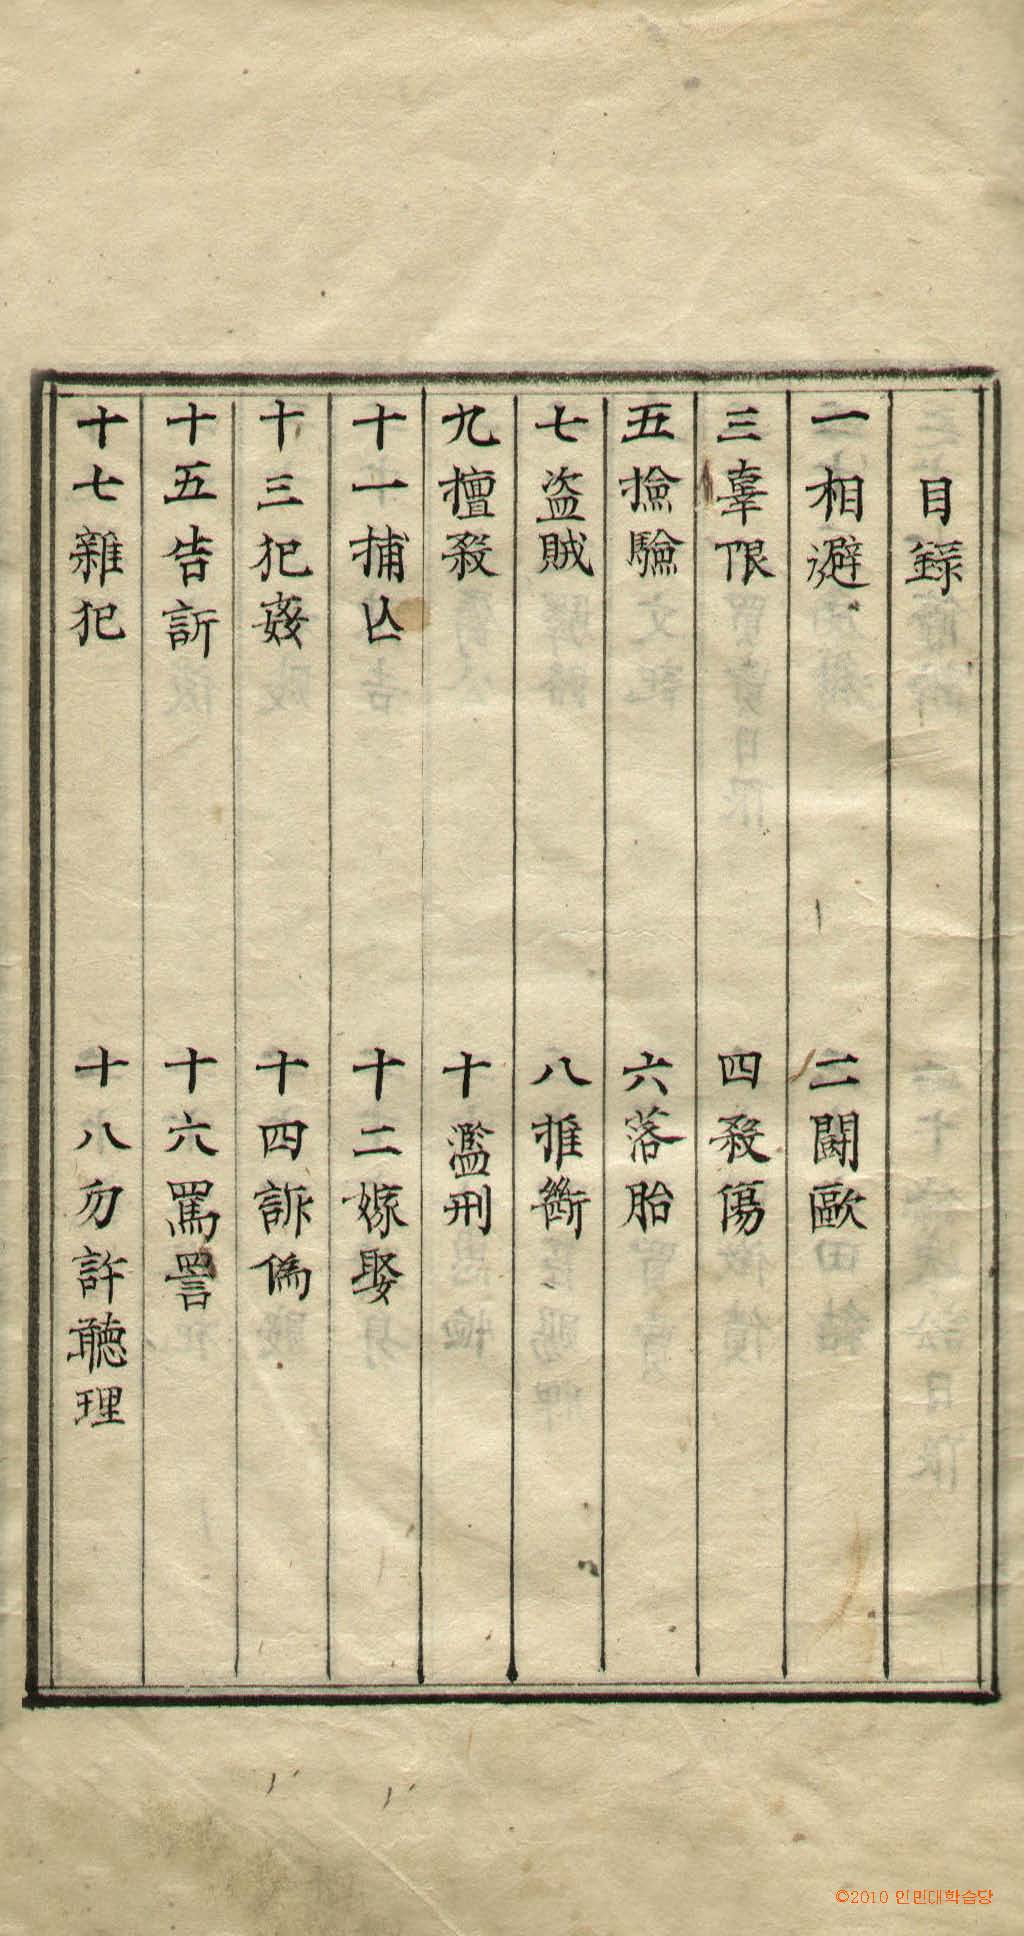 目錄
一相避 二鬪毆
三辜限 四殺傷
五撿驗 六落胎
七盜賊 八推斷
九擅殺 十濫刑
十一捕亾 十二嫁娶
十三犯姦 十四詐偽
十五告訴 十六罵詈
十七雜犯 十八勿許聽理
©2010 인민대학습당